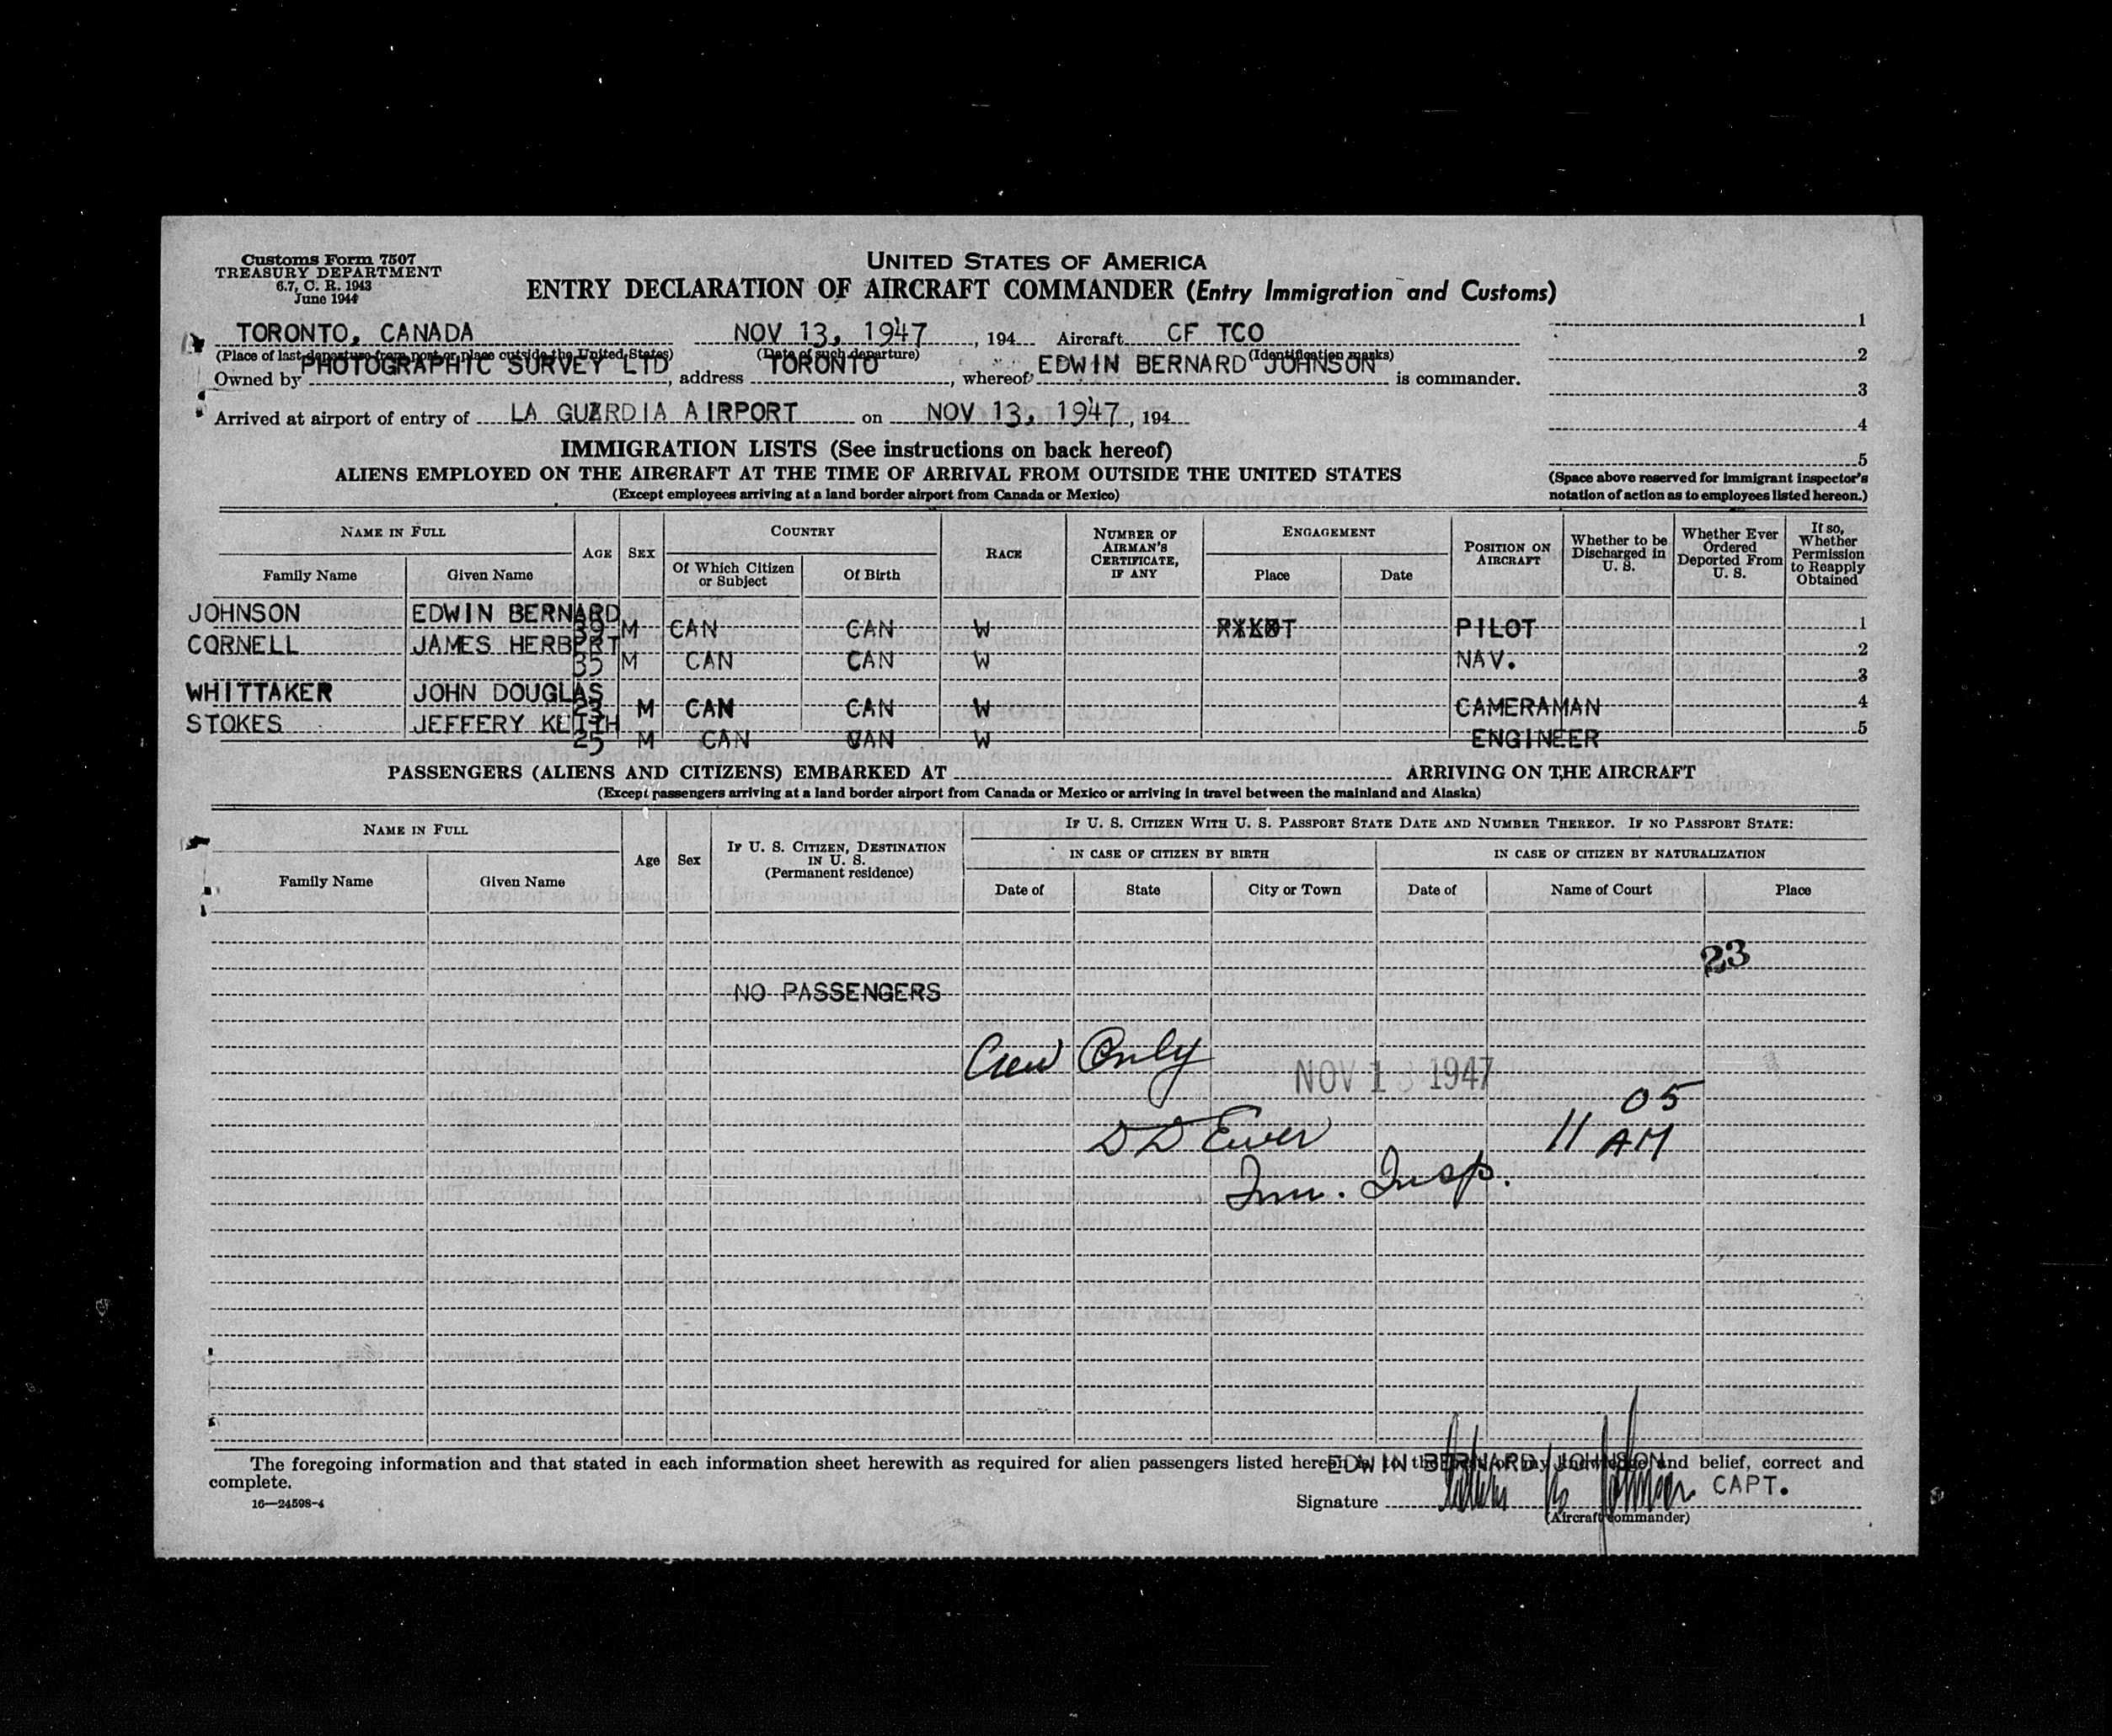 Customs Form 7507
TREASURY DEPARTMENT
6.7, C. R. 1943
June 1944
UNITED STATES OF AMERICA
ENTRY DECLARATION OF AIRCRAFT COMMANDER (Entry Immigration and Customs)
TORONTO, CANADA NOV 13, 1947, 194 Aircraft CF TCO
(Place of last departure from port or place outside the United States) (Date of such departure) (Identification marks)
Owned by PHOTOGRAPHIC SURVEY LTD, address TORONTO, whereof EDWIN BERNARD JOHNSON is commander.
Arrived at airport of entry of LA GUARDIA AIRPORT on NOV 13, 1947, 194
1
2
3
4
5
(Space above reserved for immigrant inspector's notation of action as to employees listed hereon.)
IMMIGRATION LISTS (See instructions on back hereof)
ALIENS EMPLOYED ON THE AIRCRAFT AT THE TIME OF ARRIVAL FROM OUTSIDE THE UNITED STATES
(Except employees arriving at a land border airport from Canada or Mexico)
NAME IN FULL AGE SEX COUNTRY RACE NUMBER OF AIRMAN'S CERTIFICATE, IF ANY ENGAGEMENT POSITION ON AIRCRAFT Whether to be Discharged in U. S. Whether Ever Ordered Deported From U. S. If so, Whether Permission to Reapply Obtained
Family Name Given Name Of Which Citizen or Subject Of Birth Place Date
JOHNSON EDWIN BERNARD 39 M CAN CAN W PILOT 1
CORNELL JAMES HERBERT 35 M CAN CAN W NAV. 2
3
WHITTAKER JOHN DOUGLAS M CAN CAN W CAMERAMAN 4
STOKES JEFFERY KEITH 25 M CAN CAN W ENGINEER 5
PASSENGERS (ALIENS AND CITIZENS) EMBARKED AT ARRIVING ON THE AIRCRAFT
(Except passengers arriving at a land border airport from Canada or Mexico or arriving in travel between the mainland and Alaska)
NAME IN FULL Age Sex IF U. S. CITIZEN, DESTINATION IN U. S. (Permanent residence) IF U. S. CITIZEN WITH U. S. PASSPORT STATE DATE AND NUMBER THEREOF. IF NO PASSPORT STATE:
IN CASE OF CITIZEN BY BIRTH IN CASE OF CITIZEN BY NATURALIZATION
Family Name Given Name Date of State City or Town Date of Name of Court Place
23
NO PASSENGERS
Crew Only
NOV 13 1947
11 05 AM
D D Ewer
Imm. Insp.
The foregoing information and that stated in each information sheet herewith as required for alien passengers listed hereon is to the best of my knowledge and belief, correct and
complete.
EDWIN BERNARD JOHNSON
16—24598-4
Signature Edwin B Johnson CAPT.
(Aircraft commander)